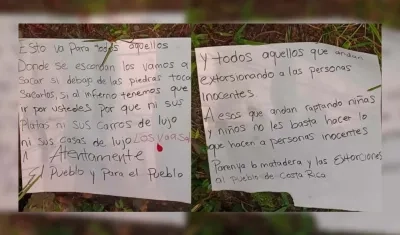 Esto va para todos aquellos
Donde se escondan los vamos a
sacar si debajo de las piedras toca
sacarlos, si al infierno tenemos que
ir por ustedes por que ni sus
Platas ni sus carros de lujo
ni sus casas de lujo Los va a
Atentamente
El Pueblo y Para el Pueblo
Y todos aquellos que andan
extorsionando a las personas
inocentes.
A esos que andan raptando niñas
y niños no les basta hacer lo
que hacen a personas inocentes
Paren ya la matadera y las Extorciones
al Pueblo de Costa Rica